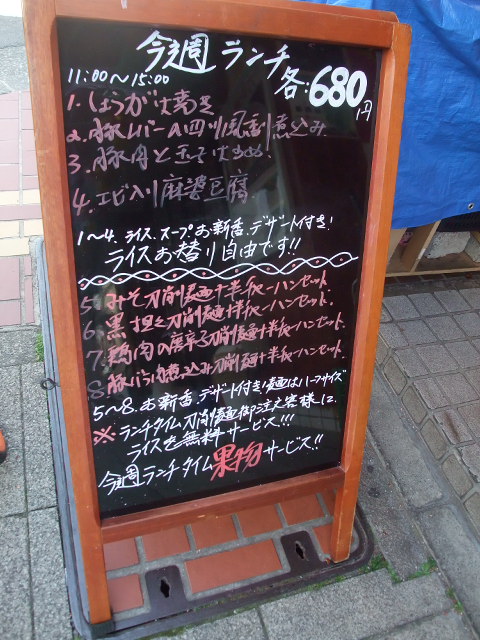 今週 ランチ
11:00〜15:00
各:680円
1. しょうが焼き
2. 豚レバーの四川風煮込み
3. 豚肉と玉子炒め
4. エビ入り麻婆豆腐
1〜4. ライス、スープ、お新香、デザート付き!
ライスお替り自由です!!
5. みそ刀削麺+半チャーハンセット.
6. 黒担々刀削麺+半チャーハンセット.
7. 鶏肉の唐辛子刀削麺+半チャーハンセット.
8. 豚バラ肉煮込み刀削麺+半チャーハンセット.
5〜8. お新香、デザート付き!麺はハーフサイズ
※ランチタイム刀削麺御注文客様に
ライスを無料サービス!!!
今週ランチタイム果物サービス!!